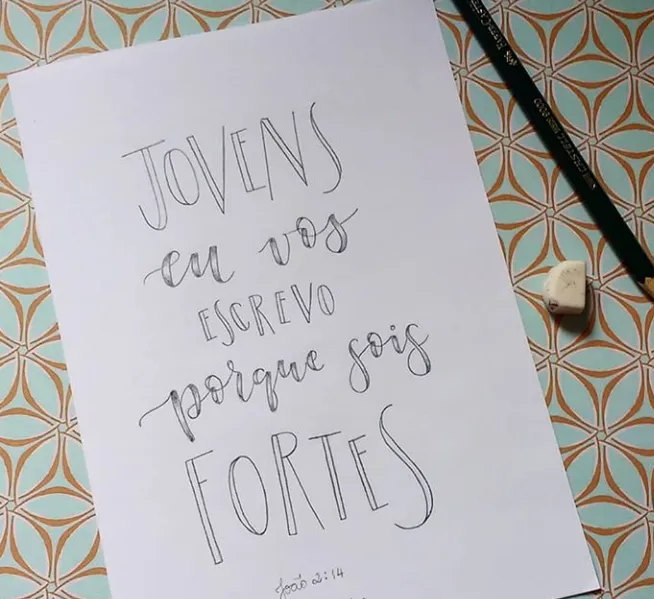 JOVENS
eu vos
ESCREVO
porque sois
FORTES
João 2:14